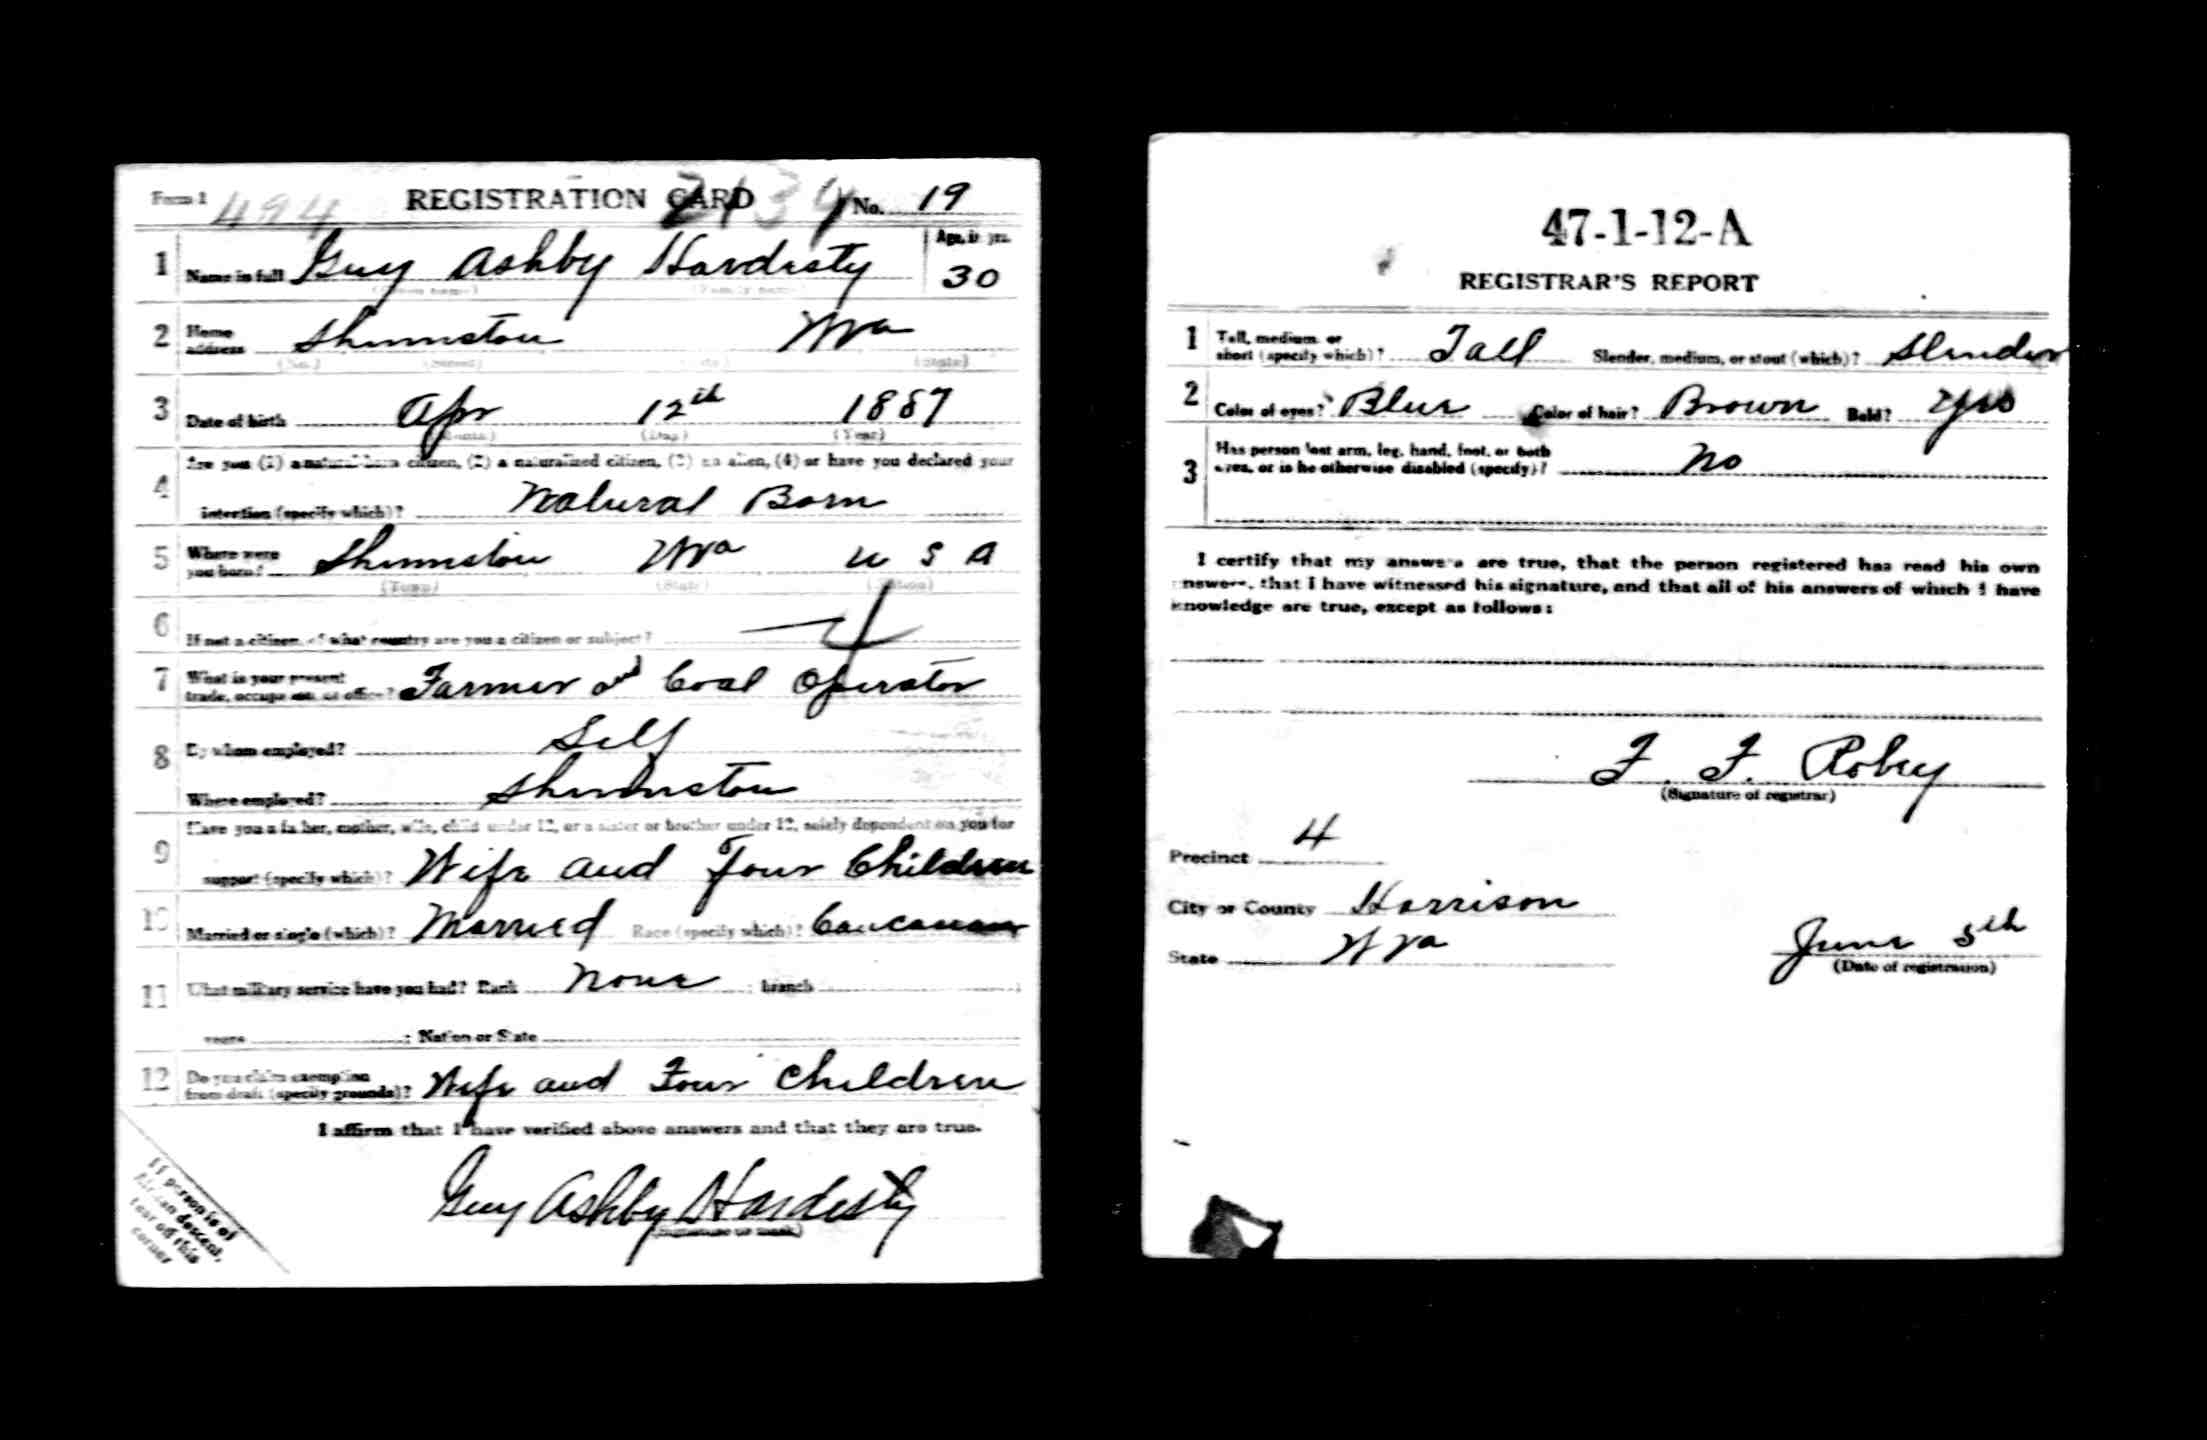 Form 1 494 REGISTRATION CARD 2134 No. 19
1 Name in full Guy Ashby Hardesty Age, in yrs. 30
(Given name) (Family name)
2 Home address Shinnston Wva
(No.) (Street) (State)
3 Date of birth Apr 12th 1887
(Month) (Day) (Year)
Are you (1) a natural-born citizen, (2) a naturalized citizen, (3) an alien, (4) or have you declared your
4 intention (specify which)? Natural Born
5 Where were you born? Shinnston Wva U S A
(Town) (State) (Nation)
6 If not a citizen, of what country are you a citizen or subject?
7 What is your present trade, occupation, or office? Farmer and Coal Operator
8 By whom employed? Self
Where employed? Shinnston
9 Have you a father, mother, wife, child under 12, or a sister or brother under 12, solely dependent on you for
support (specify which)? Wife and Four Children
10 Married or single (which)? Married Race (specify which)? Caucasian
11 What military service have you had? Rank None ; branch ;
years ; Nation or State
12 Do you claim exemption from draft (specify grounds)? Wife and Four Children
I affirm that I have verified above answers and that they are true.
Guy Ashby Hardesty
(Signature or mark)
If person is of
African descent,
tear off this
corner
47-1-12-A
REGISTRAR'S REPORT
1 Tall, medium, or short (specify which)? Tall Slender, medium, or stout (which)? Slender
2 Color of eyes? Blue Color of hair? Brown Bald? Yes
3 Has person lost arm, leg, hand, foot, or both
eyes, or is he otherwise disabled (specify)? No
I certify that my answers are true, that the person registered has read his own
answers, that I have witnessed his signature, and that all of his answers of which I have
knowledge are true, except as follows:
F. F. Robey
(Signature of registrar)
Precinct 4
City or County Harrison
State W Va
June 5th
(Date of registration)